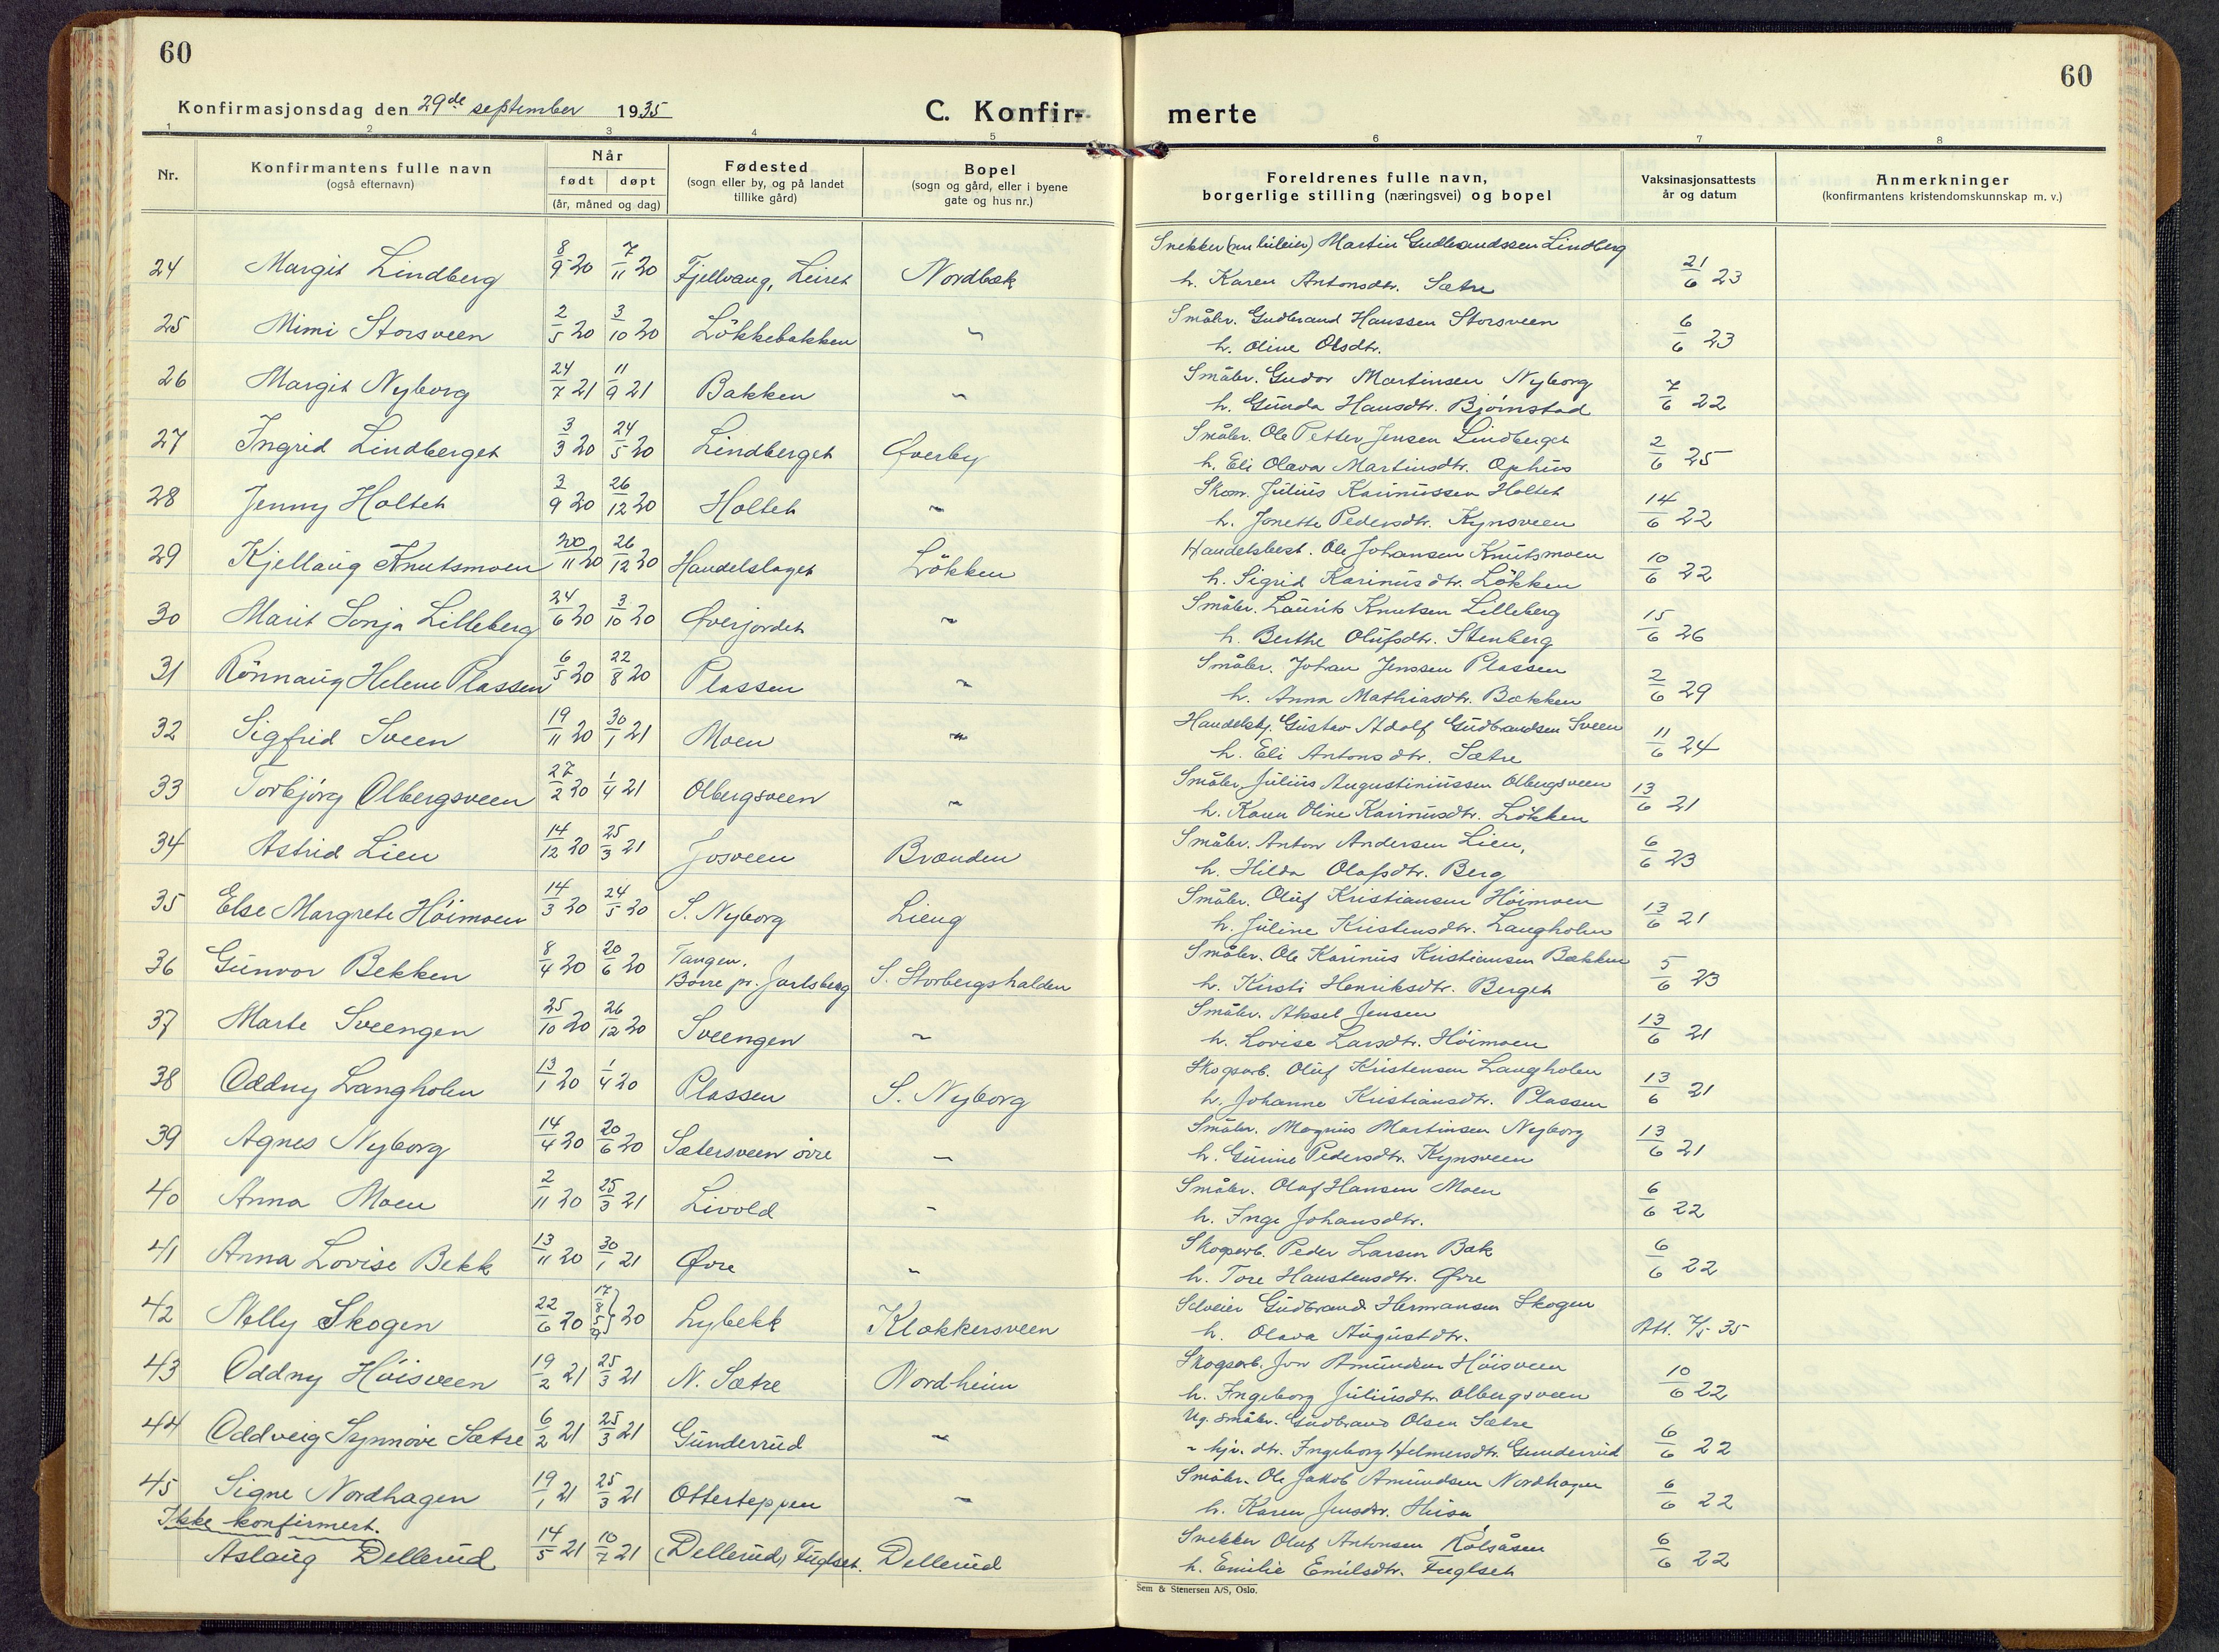 60
60
Konfirmasjonsdag den 29de september 1935
C. Konfir-
merte
1 2 3 4 5 6 7 8
Nr.
Konfirmantens fulle navn
(også efternavn)
Når
født døpt
(år, måned og dag)
Fødested
(sogn eller by, og på landet
tillike gård)
Bopel
(sogn og gård, eller i byene
gate og hus nr.)
Foreldrenes fulle navn,
borgerlige stilling (næringsvei) og bopel
Vaksinasjonsattests
år og datum
Anmerkninger
(konfirmantens kristendomskunnskap m. v.)
24 Margit Lindberg 8/9 20 7/11 20 Fjellvang, Leiret Nordbæk Snekker Martin Gudbrandssen Lindberg
h. Karen Antonsdtr. Sætre 21/6 23
25 Mimi Storsveen 2/5 20 3/10 20 Lökkebakken " Småbr. Gudbrand Hanssen Storsveen
h. Oline Olsdtr. 6/6 23
26 Margit Nyborg 24/7 21 11/9 21 Bakken " Småbr. Gudor Martinsen Nyborg
h. Gunda Hansdtr. Bjørnstad 7/6 22
27 Ingrid Lindberget 3/3 20 24/5 20 Lindberget Øverby Småbr. Ole Petter Jensen Lindberget
h. Eli Olava Martinsdtr. Ophus 2/6 25
28 Jenny Holtet 3/9 20 26/12 20 Holtet " Skom. Julius Karinussen Holtet
h. Jonette Pedersdtr. Kynsveen 14/6 22
29 Kjellaug Knutsmoen 20/11 20 26/12 20 Handelslaget Lökken Handelsbest. Ole Johansen Knutsmoen
h. Sigrid Karinusdtr. Lökken 10/6 22
30 Marit Sonja Lilleberg 24/6 20 3/10 20 Øverjordet " Småbr. Laurits Knutsen Lilleberg
h. Berthe Olufsdtr. Stenberg 15/6 26
31 Rönnaug Helene Plassen 6/5 20 22/8 20 Plassen " Småbr. Johan Jenssen Plassen
h. Anna Mathiasdtr. Bækken 2/6 29
32 Sigfrid Sveen 19/11 20 30/1 21 Moen " Handelsbj. Gustav Adolf Gudbrandsen Sveen
h. Eli Antonsdtr. Sætre 11/6 24
33 Torbjörg Olbergsveen 27/2 20 1/4 21 Olbergsveen " Småbr. Julius Augustinussen Olbergsveen
h. Karen Oline Karinusdtr. Lökken 13/6 21
34 Astrid Lien 14/12 20 25/3 21 Josveen Brænden Småbr. Anton Andersen Lien,
h. Hilda Olafsdtr. Berg 6/6 23
35 Else Margrete Höimoen 14/3 20 24/5 20 S. Nyborg Lieng Småbr. Oluf Kristiansen Höimoen
h. Juline Kristensdtr. Langholen 13/6 21
36 Gunvor Bekken 8/4 20 20/6 20 Tangen,
Borre pr. Jarlsberg S. Storbergshalden Småbr. Ole Karinus Kristiansen Bækken
h. Kirsti Henriksdtr. Berget 5/6 23
37 Marte Sveengen 25/10 20 26/12 20 Sveengen " Småbr. Aksel Jensen
h. Lovise Larsdtr. Höimoen 13/6 21
38 Oddny Langholen 13/1 20 1/4 20 Plassen S. Nyborg Skogsarb. Oluf Kristensen Langholen
h. Johanne Kristiansdtr. Plassen 13/6 21
39 Agnes Nyborg 14/4 20 20/6 20 Sætersveen övre " Småbr. Magnus Martinsen Nyborg
h. Gurine Pedersdtr. Kynsveen 13/6 21
40 Anna Moen 2/11 20 25/3 21 Livold " Småbr. Olaf Hansen Moen
h. Inge Johansdtr. 6/6 22
41 Anna Lovise Bekk 13/11 20 30/1 21 Øvre " Skogsarb. Peder Larsen Bæk
h. Tore Haustensdtr. Øvre 6/6 22
42 Nelly Skogen 22/6 20 17/8 5/9 } 20 Lybekk Klokkersveen Selveier Gudbrand Hermansen Skogen
h. Olava Augustdtr. Att. 7/5 35
43 Oddny Höisveen 19/2 21 25/3 21 N. Sætre Nordheim Skogsarb. Jon Amundsen Höisveen
h. Ingeborg Juliusdtr. Olbergsveen 10/6 22
44 Oddveig Synnöve Sætre 6/2 21 25/3 21 Gunderrud " Ug. småbr. Gudbrand Olsen Sætre
" hjv. dtr. Ingeborg Helmersdtr. Gunderrud 6/6 22
45 Signe Nordhagen 19/1 21 25/3 21 Otterteppen " Småbr. Ole Jakob Amundsen Nordhagen
h. Karen Jensdtr. 6/6 22
Ikke konfirmert.
Aslaug Dellerud 14/5 21 10/7 21 (Dellerud) Fuglset. Dellerud Snekker Oluf Antonsen Kolsåsen
h. Emilie Emilsdtr. Fuglset 6/6 22
Sem & Stenersen A/S, Oslo.